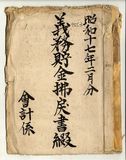 昭和十七年二月分
義務貯金拂戻書綴
會計係